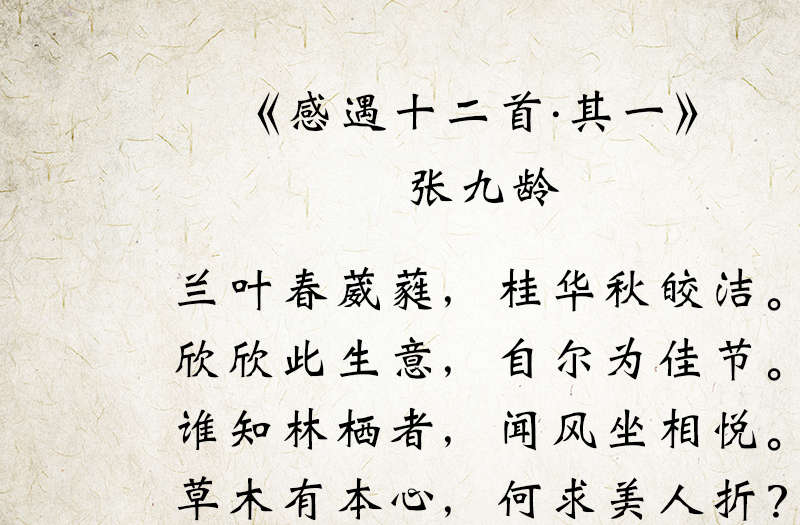 《感遇十二首·其一》
张九龄
兰叶春葳蕤，桂华秋皎洁。
欣欣此生意，自尔为佳节。
谁知林栖者，闻风坐相悦。
草木有本心，何求美人折？